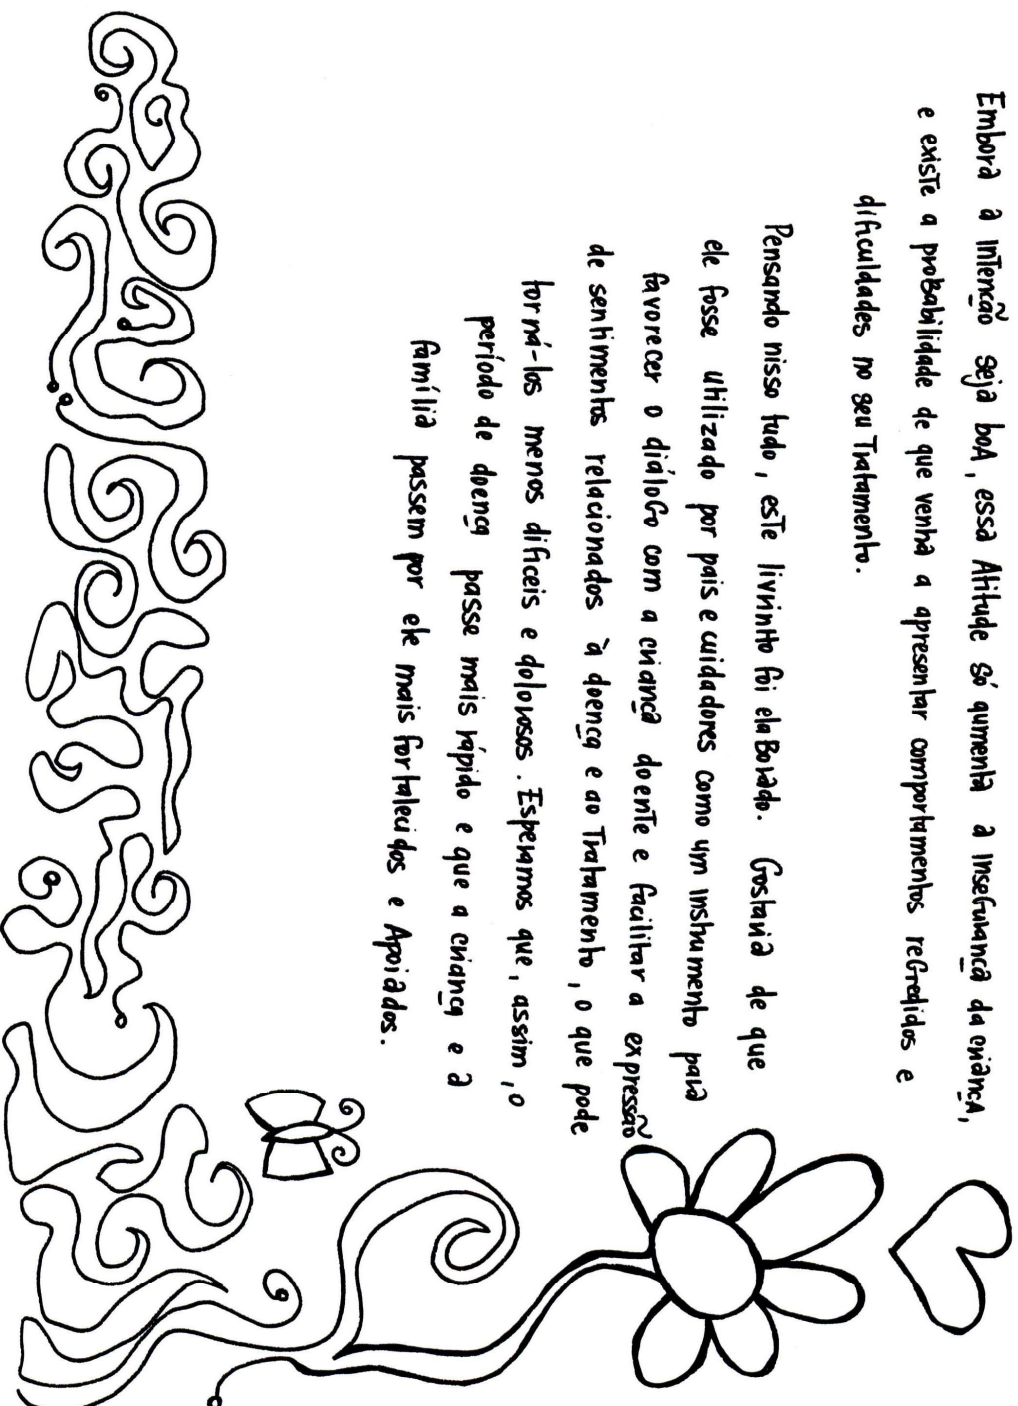 Embora a intenção seja boA, essa Atitude só aumenta a inseGurança da criançA,
e existe a probabilidade de que venha a apresentar comportamentos reGredidos e
dificuldades no seu Tratamento.
Pensando nisso tudo, este livrinHo foi elaBorado. Gostaria de que
ele fosse utilizado por pais e cuidadores como um instrumento para
favorecer o diáloGo com a criança doente e facilitar a expressão
de sentimentos relacionados à doença e ao Tratamento, o que pode
torná-los menos difíceis e dolorosos. Esperamos que, assim, o
período de doença passe mais rápido e que a criança e a
família passem por ele mais fortalecidos e Apoiados.